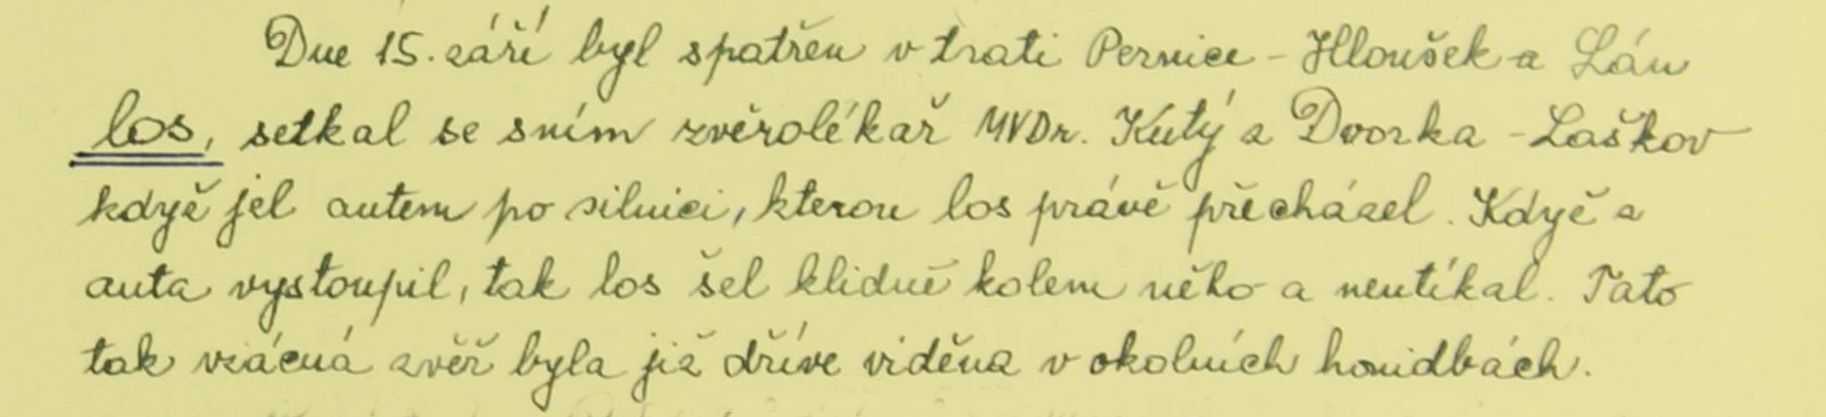 Dne 15. září byl spatřen v trati Pernice - Hloušek a Lán
los, setkal se sním zvěrolékař MVDr. Kutý z Dvorka - Laškov
když jel autem po silnici, kterou los právě přecházel. Když z
auta vystoupil, tak los šel klidně kolem něho a neutíkal. Tato
tak vzácná zvěř byla již dříve viděna v okolních honidbách.